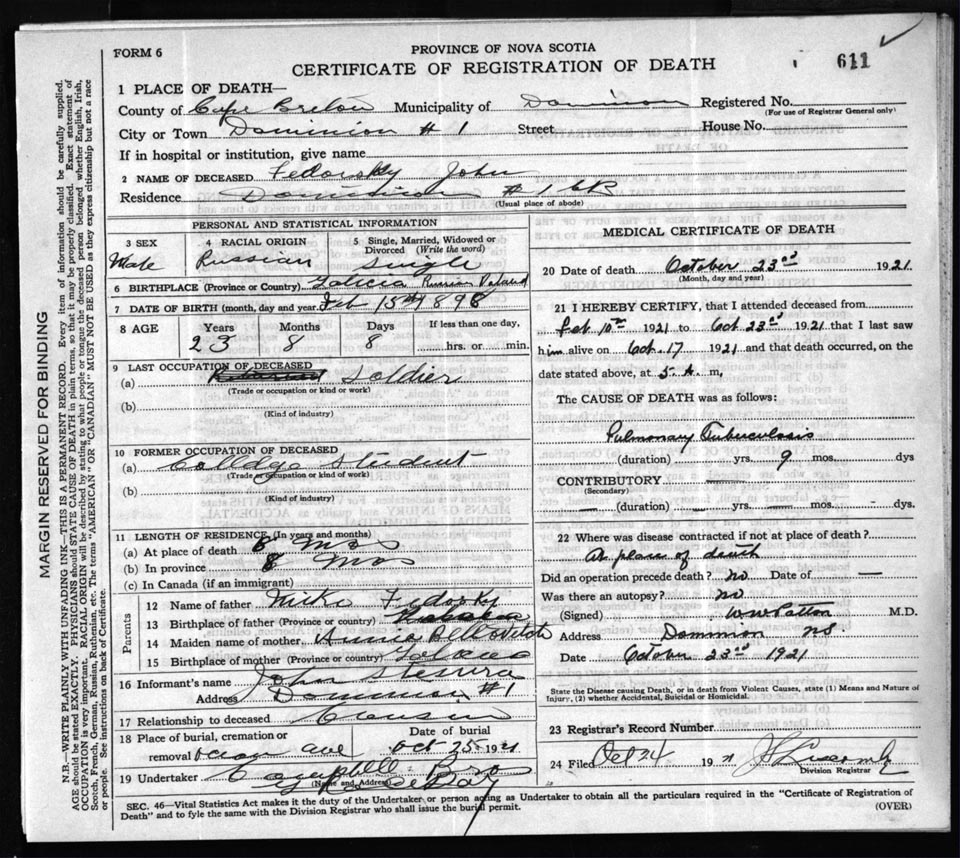 FORM 6
PROVINCE OF NOVA SCOTIA
CERTIFICATE OF REGISTRATION OF DEATH
611
1 PLACE OF DEATH—
County of Cape Breton Municipality of Dominion Registered No.
(For use of Registrar General only)
City or Town Dominion # 1 Street House No.
If in hospital or institution, give name
2 NAME OF DECEASED Fedorsky John
Residence Dominion # 1 CB
(Usual place of abode)
PERSONAL AND STATISTICAL INFORMATION
3 SEX
Male
4 RACIAL ORIGIN
Russian
5 Single, Married, Widowed or Divorced (Write the word)
Single
6 BIRTHPLACE (Province or Country) Galicia Russian Poland
7 DATE OF BIRTH (month, day and year) Feb 15th 1898
8 AGE Years Months Days If less than one day,
23 8 8 hrs. or min.
9 LAST OCCUPATION OF DECEASED
(a) Soldier
(Trade or occupation or kind or work)
(b)
(Kind of industry)
10 FORMER OCCUPATION OF DECEASED
(a) College Student
(Trade or occupation or kind of work)
(b)
(Kind of industry)
11 LENGTH OF RESIDENCE (In years and months)
(a) At place of death 8 Mos
(b) In province 8 Mos
(c) In Canada (if an immigrant)
Parents
12 Name of father Mike Fedorsky
13 Birthplace of father (Province or country)
14 Maiden name of mother Annie
15 Birthplace of mother (Province or country) Galicia
16 Informant's name John
Address Dominion #1
17 Relationship to deceased Cousin
18 Place of burial, cremation or removal Date of burial
Ocean Ave Oct 25 1921
19 Undertaker Campbell Bros
(Name and Address) Bay
MEDICAL CERTIFICATE OF DEATH
20 Date of death October 23rd 1921
(Month, day and year)
21 I HEREBY CERTIFY, that I attended deceased from
Feb 10th 1921 to Oct 23rd 1921 that I last saw
him alive on Oct. 17 1921 and that death occurred, on the
date stated above, at 5. A m,
The CAUSE OF DEATH was as follows:
Pulmonary Tuberculosis
(duration) yrs. 9 mos. dys
CONTRIBUTORY
(Secondary)
(duration) yrs. mos. dys
22 Where was disease contracted if not at place of death?
At place of death
Did an operation precede death? no Date of —
Was there an autopsy? no
(Signed) W W Patton M.D.
Address Dominion NS.
Date October 23rd 1921
State the Disease causing Death, or in death from Violent Causes, state (1) Means and Nature of
Injury, (2) whether Accidental, Suicidal or Homicidal.
23 Registrar's Record Number
24 Filed Oct 24 1921
Division Registrar
SEC. 46—Vital Statistics Act makes it the duty of the Undertaker, or person acting as Undertaker to obtain all the particulars required in the "Certificate of Registration of
Death" and to fyle the same with the Division Registrar who shall issue the burial permit. (OVER)
MARGIN RESERVED FOR BINDING
N.B.—WRITE PLAINLY WITH UNFADING INK—THIS IS A PERMANENT RECORD. Every item of information should be carefully supplied.
AGE should be stated EXACTLY. PHYSICIANS should STATE CAUSE OF DEATH in plain terms, so that it may be properly classified. Exact statement of
OCCUPATION is very important. RACIAL ORIGIN will be described by stating to what people or tongue the deceased person belonged whether English, Irish,
Scotch, French, German, Russian, Ruthenian, etc. The terms "AMERICAN" OR "CANADIAN" MUST NOT BE USED as they express citizenship but not a race
or people. See instructions on back of Certificate.